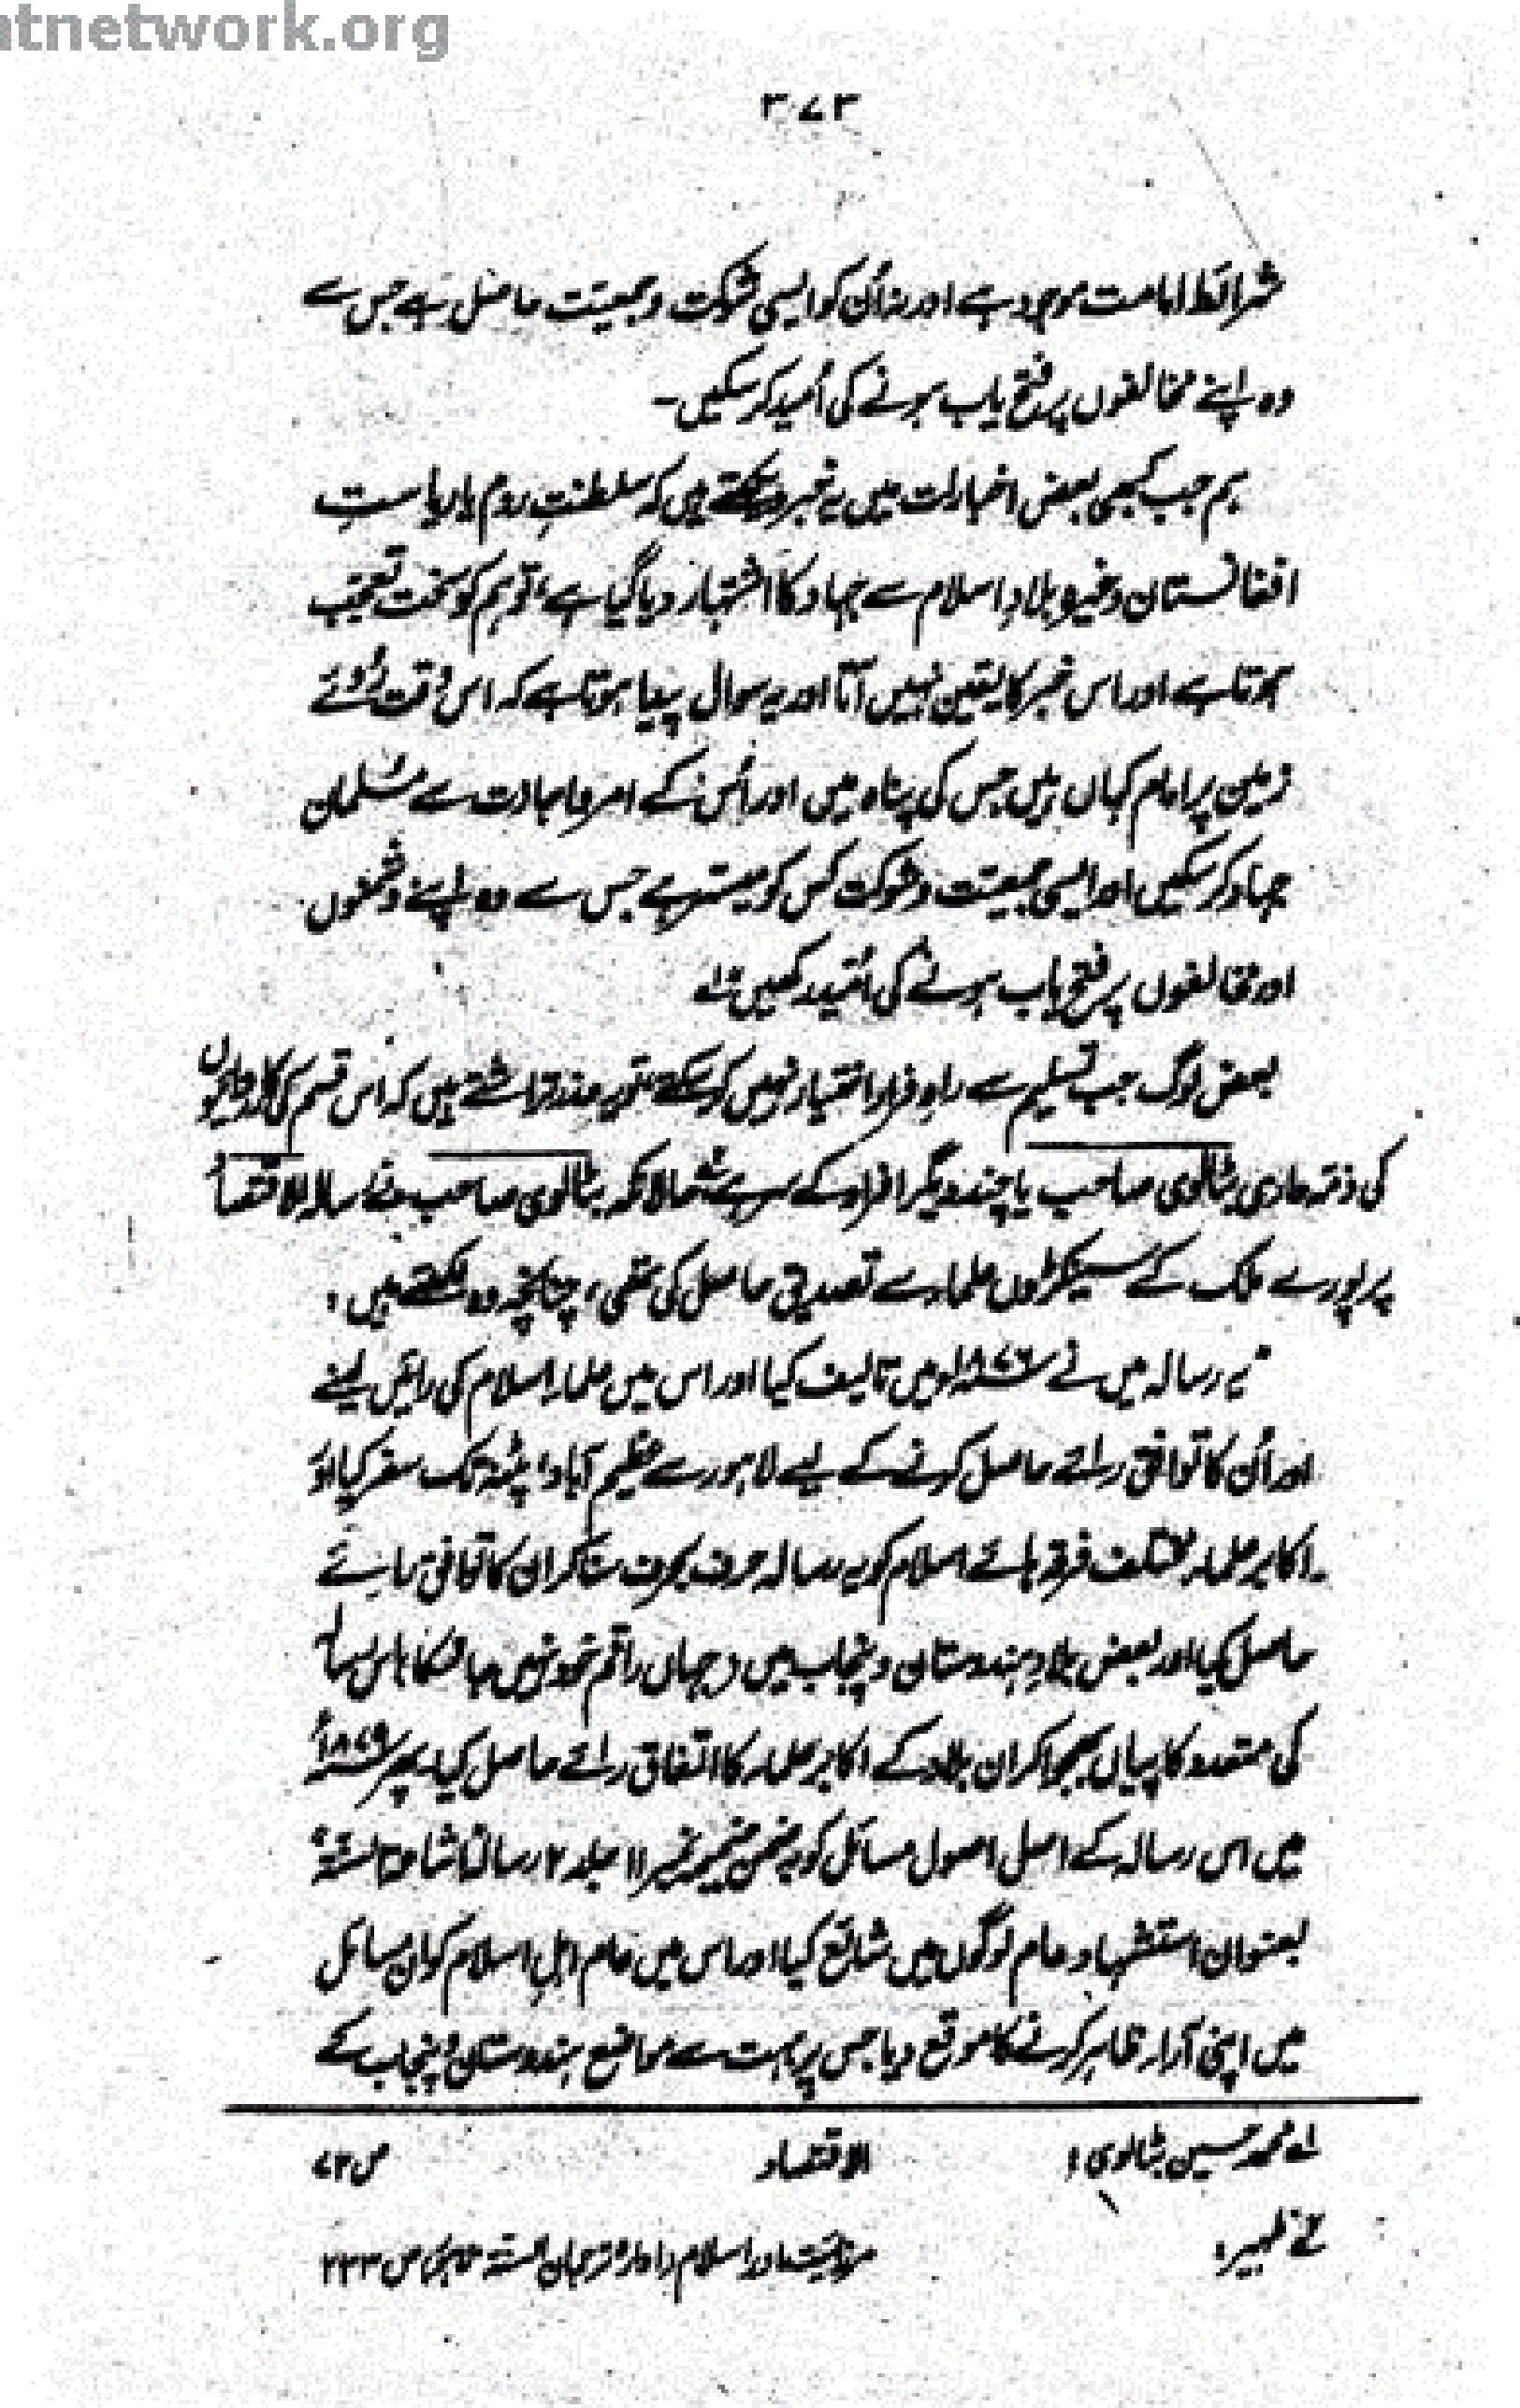 ntnetwork.org
۳۷۳
شرائط امامت موجود ہے اور نہ اُن کو ایسی شوکت و جمعیت حاصل ہے جس سے
وہ اپنے مخالفوں پر فتح یاب ہونے کی اُمید کر سکیں۔
ہم جب کبھی بعض اخبارات میں یہ خبر دیکھتے ہیں کہ سلطنتِ روم یا ریاستِ
افغانستان وغیرہ بلادِ اسلام سے جہاد کا اشتہار دیا گیا ہے، تو ہم کو سخت تعجب
ہوتا ہے اور اس خبر کا یقین نہیں آتا اور یہ سوال پیدا ہوتا ہے کہ اس وقت رُوئے
زمین پر امام کہاں ہیں جس کی پناہ میں اور اُس کے امر و اجازت سے مسلمان
جہاد کر سکیں اور ایسی جمعیت و شوکت کس کو میسر ہے جس سے وہ اپنے دشمنوں
اور مخالفوں پر فتح یاب ہونے کی اُمید رکھیں لے
بعض لوگ جب تسلیم سے راہِ فرار اختیار نہیں کر سکتے تو یہ عذر تراشتے ہیں کہ اس قسم کی کارروائیوں
کی ذمہ داری بٹالوی صاحب یا چند دیگر افراد کے سر ہے حالانکہ بٹالوی صاحب نے رسالہ الاقتصاد
پر پورے ملک کے سینکڑوں علماء سے تصدیق حاصل کی تھی، چنانچہ وہ لکھتے ہیں:
”یہ رسالہ میں نے ۱۸۷۶ء میں تالیف کیا اور اس میں علماءِ اسلام کی رائیں لینے
اور اُن کا توافق رائے حاصل کرنے کے لیے لاہور سے عظیم آباد، پٹنہ تک سفر کیا اور
اکابر علماء مختلف فرقہ ہائے اسلام کو یہ رسالہ حرف بحرف سنا کر ان کا توافق رائے
حاصل کیا اور بعض بلادِ ہندوستان و پنجاب میں (جہاں راقم خود نہیں جا سکا) اس رسالہ
کی متعدد کاپیاں بھجوا کر ان بلاد کے اکابر علماء کا اتفاق رائے حاصل کیا، پھر ۱۸۷۹ء
میں اس رسالہ کے اصل اصول مسائل کو بہ ضمن ضمیمہ نمبر ۱۱ جلد ۲ رسالہ اشاعۃ السنۃ
بعنوان استشہاد عام لوگوں میں شائع کیا اور اس میں عام اہلِ اسلام کو ان مسائل
میں اپنی آراء ظاہر کرنے کا موقع دیا جس پر بہت سے مواضع ہندوستان و پنجاب کے
لے محمد حسین بٹالوی: الاقتصاد ص ۷۲
لے ظہیر: مرزائیت اور اسلام (ادارہ ترجمان السنۃ لاہور) ص ۲۳۳